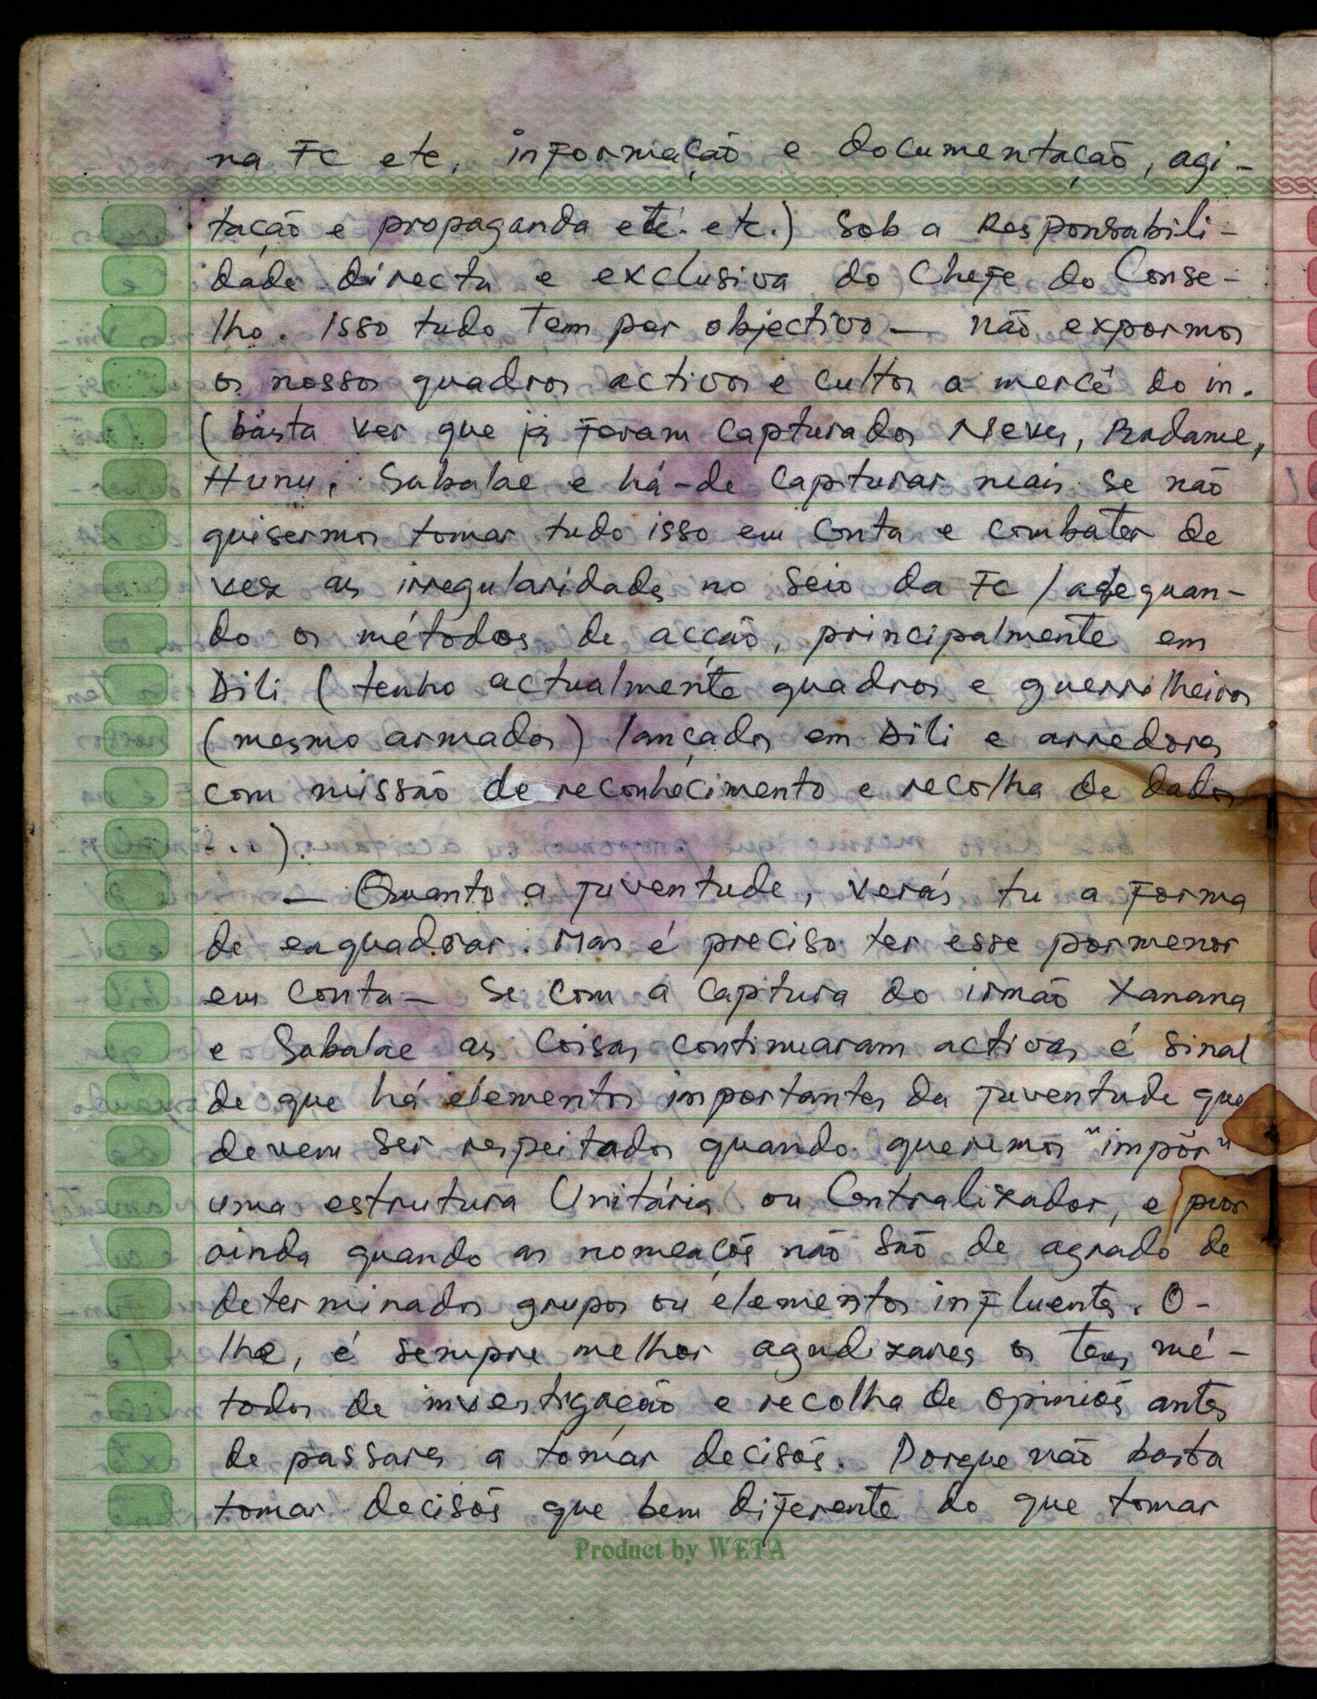 na Fc etc, informação e documentação, agi-
tação e propaganda etc. etc.) sob a Responsabili-
dade directa e exclusiva do Chefe do Conse-
lho. Isso tudo tem por objectivo — não expormos
os nossos quadros activos e cultos a mercê do in.
(basta ver que já foram capturados Neves,
Hunu, Sabalae e há-de capturar mais se não
quisermos tomar tudo isso em conta e combater de
vez as irregularidades no seio da Fc / adequan-
do os métodos de acção, principalmente em
Dili (tenho actualmente quadros e guerrilheiros
(mesmo armados) lançados em Dili e arredores
com missão de reconhecimento e recolha de dados
...).
— Quanto a juventude, verás tu a forma
de enquadrar. Mas é preciso ter esse pormenor
em conta — se com a captura do irmão Xanana
e Sabalae as coisas continuaram activas é sinal
de que há elementos importantes da juventude que
devem ser respeitados quando queremos "impôr"
uma estrutura Unitária ou Centralizador, e pior
ainda quando as nomeações não são de agrado de
determinados grupos ou elementos influentes. O-
lha, é sempre melhor agudizares os teus mé-
todos de investigação e recolha de opiniões antes
de passares a tomar decisões. Porque não basta
tomar decisões que bem diferente do que tomar
Product by WETA